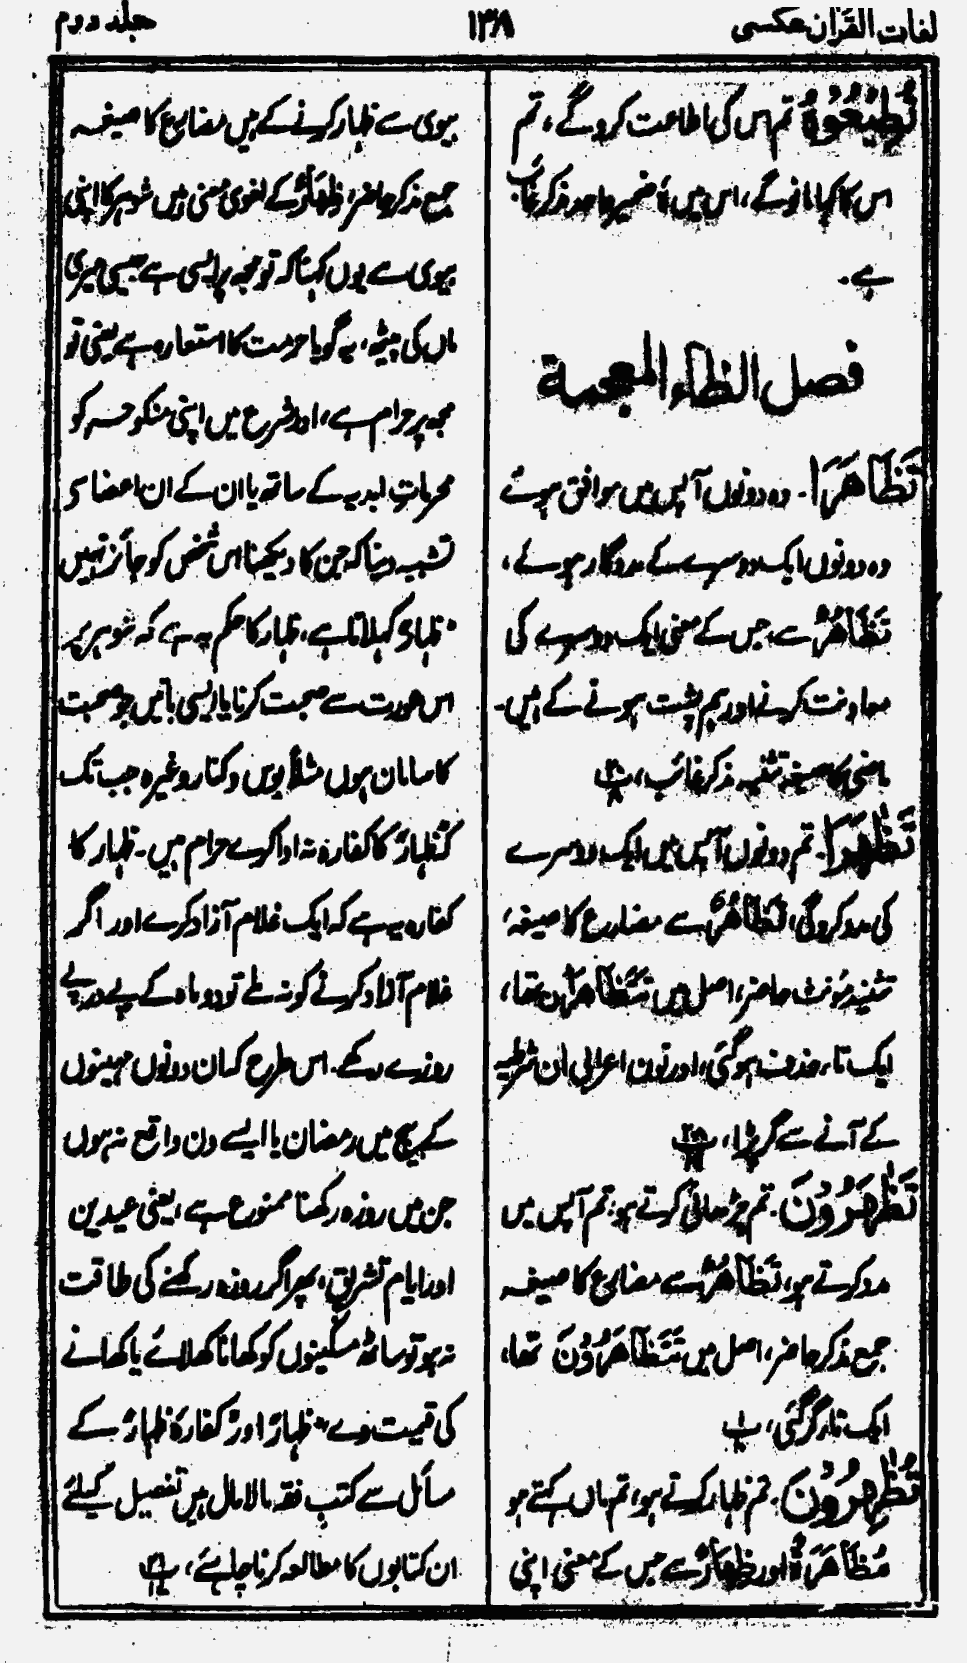 لغات القرآن عکسی
۱۳۸
جلد دوم
تُطِيْعُوْهُ تم اس کی اطاعت کروگے، تم
اس کا کہا مانوگے، اس میں ہٗ ضمیر واحد مذکر غائب
ہے۔
فصل الظاء المعجمة
تَظَاهَرَا۔ وہ دونوں آپس میں موافق ہوئے
وہ دونوں ایک دوسرے کے مددگار ہوئے،
تَظَاهُرٌ سے، جس کے معنی ایک دوسرے کی
معاونت کرنے اور ہم پشت ہونے کے ہیں۔
ماضی کا صیغہ تثنیہ مذکر غائب،
تَظٰهَرَا۔ تم دونوں آپس میں ایک دوسرے
کی مدد کروگی، تَظَاهُرٌ سے مضارع کا صیغہ،
تثنیہ مؤنث حاضر، اصل میں تَتَظَاهَرَانِ تھا،
ایک تاء حذف ہوگئی، اور نون اعرابی اِن شرطیہ
کے آنے سے گر پڑا،
تَظٰهَرُوْنَ۔ تم چڑھائی کرتے ہو، تم آپس میں
مدد کرتے ہو، تَظَاهُرٌ سے مضارع کا صیغہ
جمع مذکر حاضر، اصل میں تَتَظَاهَرُوْنَ تھا،
ایک تاء گر گئی،
تُظٰهِرُوْنَ۔ تم ظہار کرتے ہو، تم ماں کہتے ہو
مُظَاهَرَةٌ اور ظِهَارٌ سے جس کے معنی اپنی
بیوی سے ظہار کرنے کے ہیں مضارع کا صیغہ
جمع مذکر حاضر، ظِهَارٌ کے لغوی معنی ہیں شوہر کا اپنی
بیوی سے یوں کہنا کہ تو مجھ پر ایسی ہے جیسی میری
ماں کی پیٹھ، یہ گویا حرمت کا استعارہ ہے یعنی تو
مجھ پر حرام ہے، اور شرع میں اپنی منکوحہ کو
محرمات ابدیہ کے ساتھ یا ان کے ان اعضا سے
تشبیہ دینا کہ جن کا دیکھنا اس شخص کو جائز نہیں
"ظہار" کہلاتا ہے، ظہار کا حکم یہ ہے کہ شوہر پر
اس عورت سے صحبت کرنا یا ایسی باتیں جو صحبت
کا سامان ہوں مثلاً بوس و کنار وغیرہ جب تک
کہ ظہار کا کفارہ نہ ادا کرے حرام ہیں۔ ظہار کا
کفارہ یہ ہے کہ ایک غلام آزاد کرے اور اگر
غلام آزاد کرنے کو نہ ملے تو دو ماہ کے پے در پے
روزے رکھے۔ اس طرح کہ ان دونوں مہینوں
کے بیچ میں رمضان یا ایسے دن واقع نہ ہوں
جن میں روزہ رکھنا ممنوع ہے، یعنی عیدین
اور ایام تشریق، پھر اگر روزہ رکھنے کی طاقت
نہ ہو تو ساٹھ مسکینوں کو کھانا کھلائے یا کھانے
کی قیمت دے "ظہار" اور "کفارۂ ظہار" کے
مسائل سے کتب فقہ مالامال ہیں تفصیل کیلئے
ان کتابوں کا مطالعہ کرنا چاہئے،